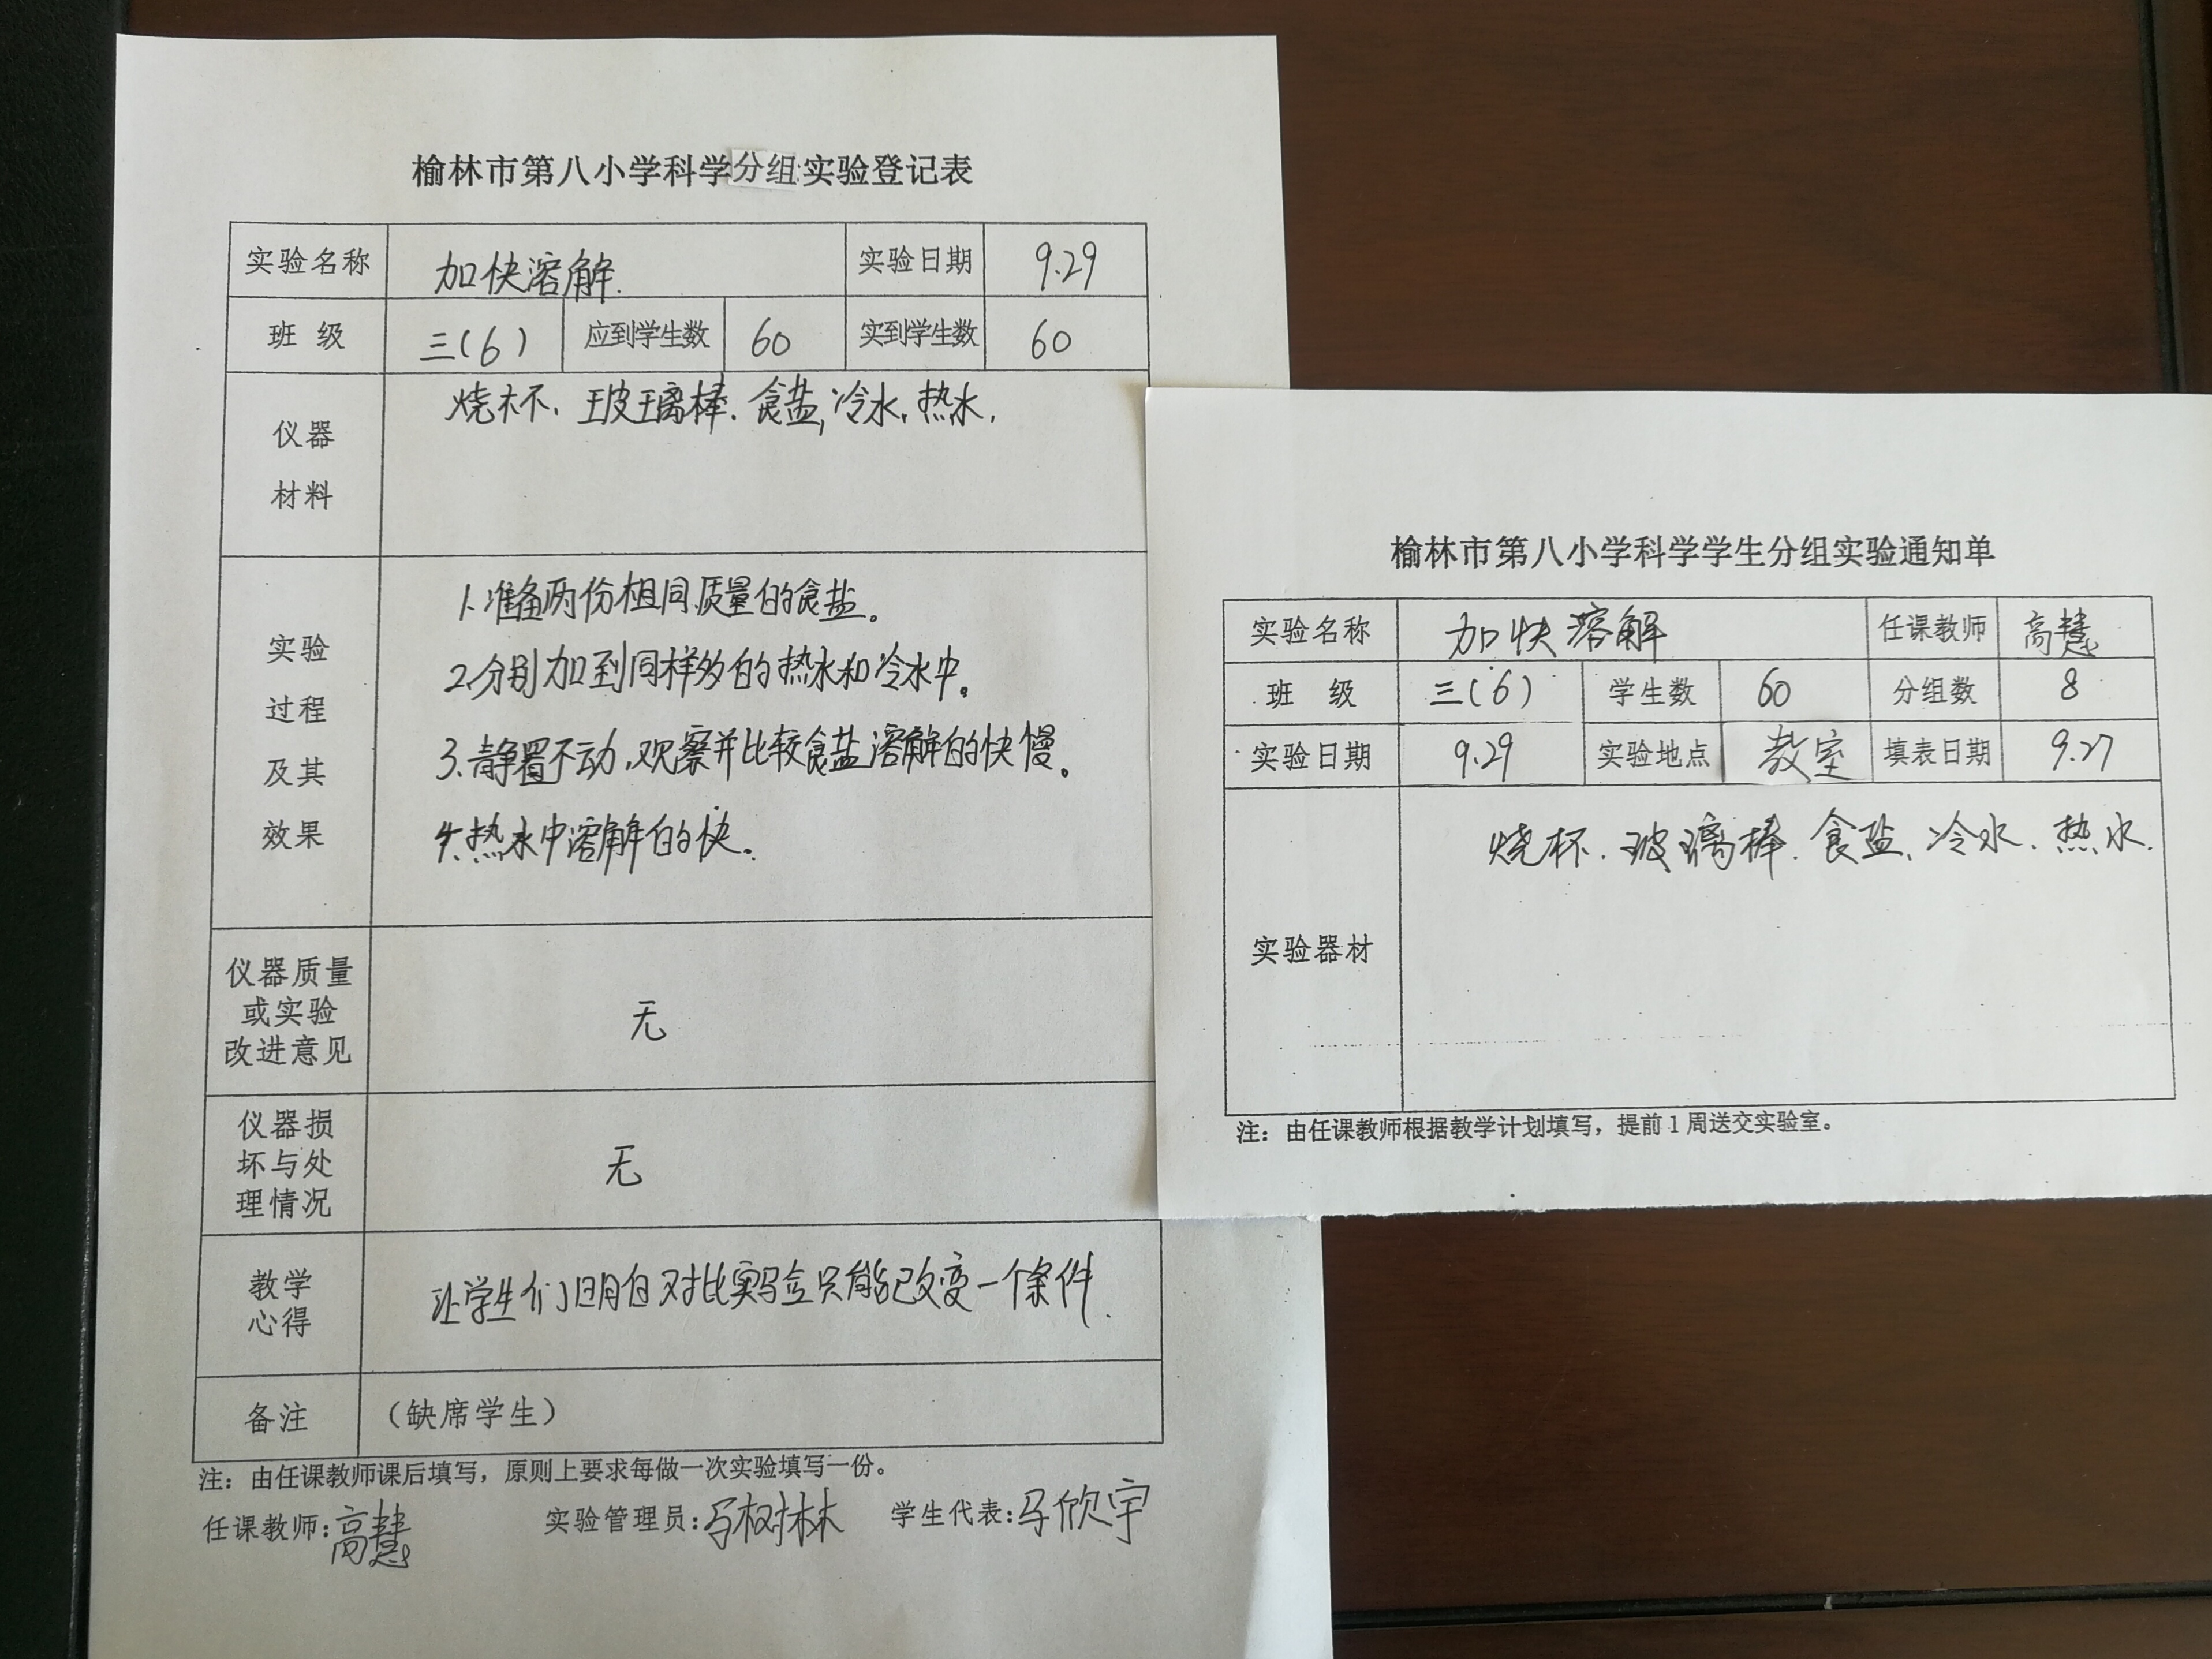 榆林市第八小学科学分组实验登记表
实验名称 加快溶解. 实验日期 9.29
班 级 三(6) 应到学生数 60 实到学生数 60
仪器
材料
烧杯、玻璃棒、食盐,冷水,热水.
实验
过程
及其
效果
1.准备两份相同质量的食盐。
2.分别加到同样多的热水和冷水中。
3.静置不动,观察并比较食盐溶解的快慢。
4.热水中溶解的快。
仪器质量
或实验
改进意见
无
仪器损
坏与处
理情况
无
教学
心得
让学生们明白对比实验只能改变一个条件.
备注 (缺席学生)
注：由任课教师课后填写，原则上要求每做一次实验填写一份。
任课教师:高慧 实验管理员:马树林 学生代表:马欣宇
榆林市第八小学科学学生分组实验通知单
实验名称 加快溶解 任课教师 高慧
班 级 三(6) 学生数 60 分组数 8
实验日期 9.29 实验地点 教室 填表日期 9.27
实验器材
烧杯、玻璃棒、食盐、冷水、热水.
注：由任课教师根据教学计划填写，提前1周送交实验室。